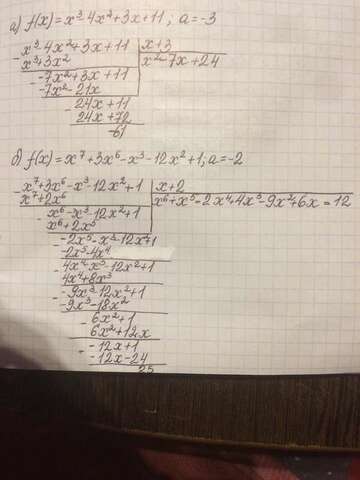 а) f(x) = x³-4x²+3x+11; a=-3
- x³-4x²+3x+11 | x+3
x³+3x² | x²-7x+24
- -7x²+3x+11
-7x²-21x
- 24x+11
24x+72
-61
б) f(x) = x⁷+3x⁶-x³-12x²+1; a=-2
- x⁷+3x⁶-x³-12x²+1 | x+2
x⁷+2x⁶ | x⁶+x⁵-2x⁴+4x³-9x²+6x=12
- x⁶-x³-12x²+1
x⁶+2x⁵
- -2x⁵-x³-12x²+1
-2x⁵-4x⁴
- 4x⁴-x³-12x²+1
4x⁴+8x³
- -9x³-12x²+1
-9x³-18x²
- 6x²+1
6x²+12x
- -12x+1
-12x-24
25